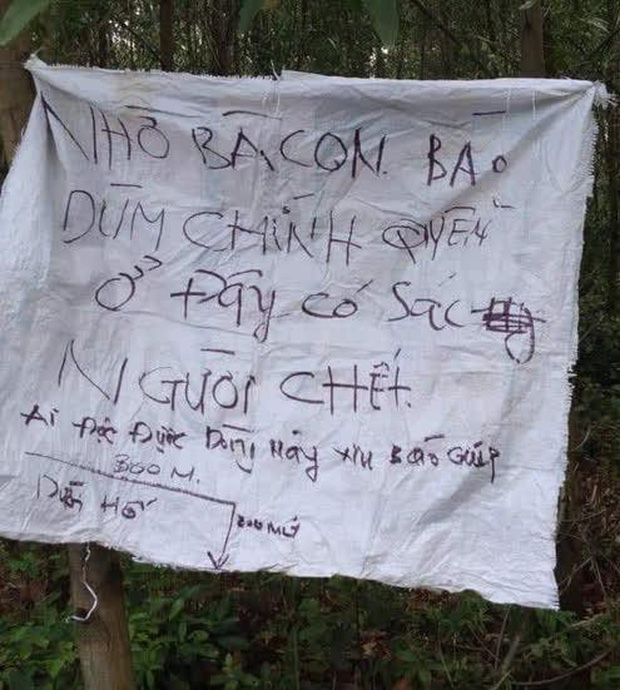 NHỜ BÀ CON. BÁO
DÙM CHÍNH QUYỀN
Ở ĐÂY CÓ SÁC
NGƯỜI CHẾT.
Ai Đọc Được Dòng Này Xin Báo Giúp
300 M.
HỐ
200 M